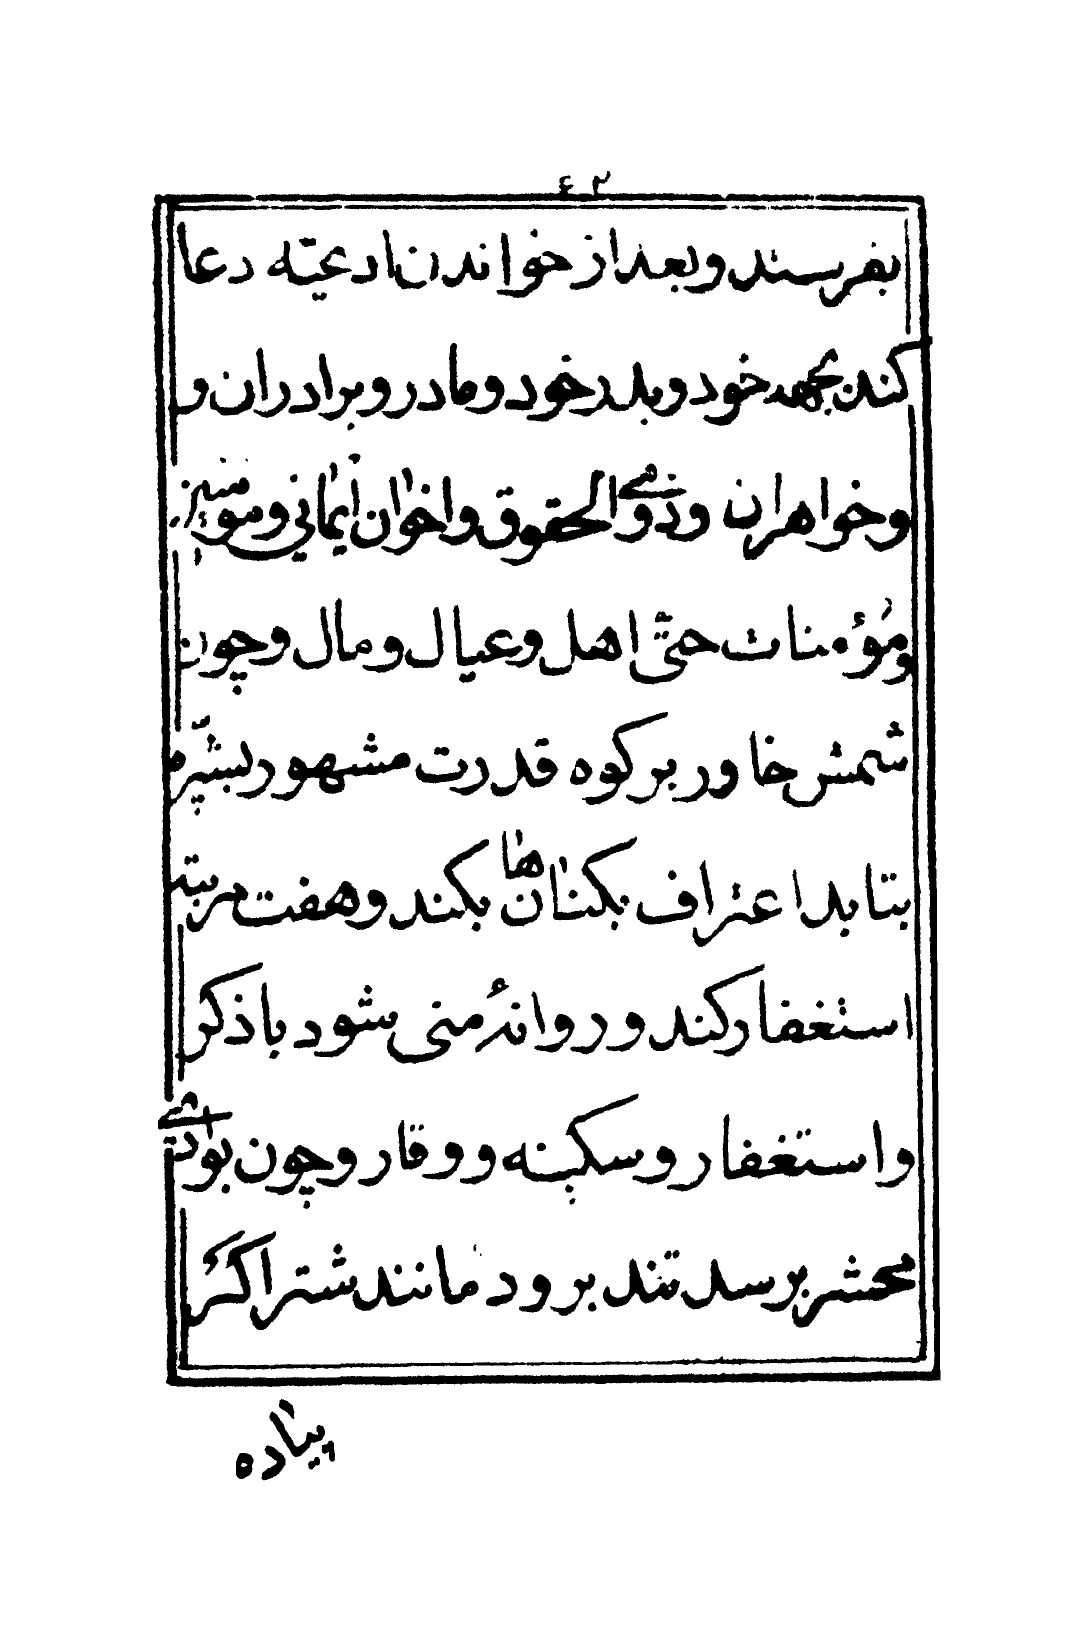 ٤٢
بفرسند و بعد از خواندن ادعیّه دعا
کند بجهة خود و پدر خود و مادر و برادران و
و خواهران و ذوی الحقوق و اخوان ایمانی و مؤمنین
و مؤمنات حتّی اهل و عیال و مال و چون
شمس خاور بر کوه قدرت مشهور بثیر
بتابد اعتراف بکناهان بکند و هفت مرتبه
استغفار کند و روانهٔ منی شود با ذکر
و استغفار و سکینه و وقار و چون بوادی
محشر برسد تند برود مانند شتر اکر
پیاده